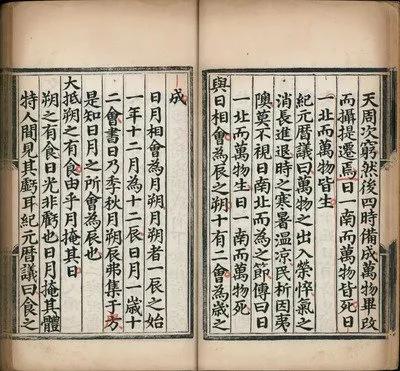 天周次窮然後四時備成萬物畢改
而攝提遷焉日一南而萬物皆死日
一北而萬物皆生
紀元曆議曰萬物之出入榮悴氣之
消長進退時之寒暑温涼民析因夷
隩莫不視日南北而為之節傳曰日
一北而萬物生日一南而萬物死
與日相會為辰之朔十有二會為歲之
成
日月相會為月朔月朔者一辰之始
一年十二月為十二辰日月一歲十
二會書曰乃季秋月朔辰弗集于方
是知日月之所會為辰也
大抵朔之有食由乎月掩其日
朔之有食日光非虧也日月掩其體
特人間見其虧耳紀元曆議曰食之